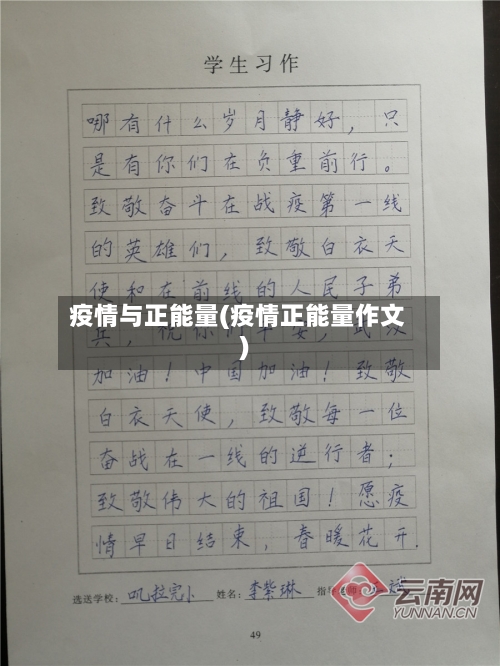 学生习作
哪有什么岁月静好，只
是有你们在负重前行。
致敬奋斗在战疫第一线
的英雄们，致敬白衣天
使和在前线的人民子弟
疫情与正能量(疫情正能量作文
)
兵，祝你们平安，武汉
加油！中国加油！致敬
白衣天使，致敬每一位
奋战在一线的逆行者；
致敬伟大的祖国！愿疫
情早日结束，春暖花开.
选送学校：叽拉完小 姓名：李紫琳 指导
云南网
YUNNAN.CN
49